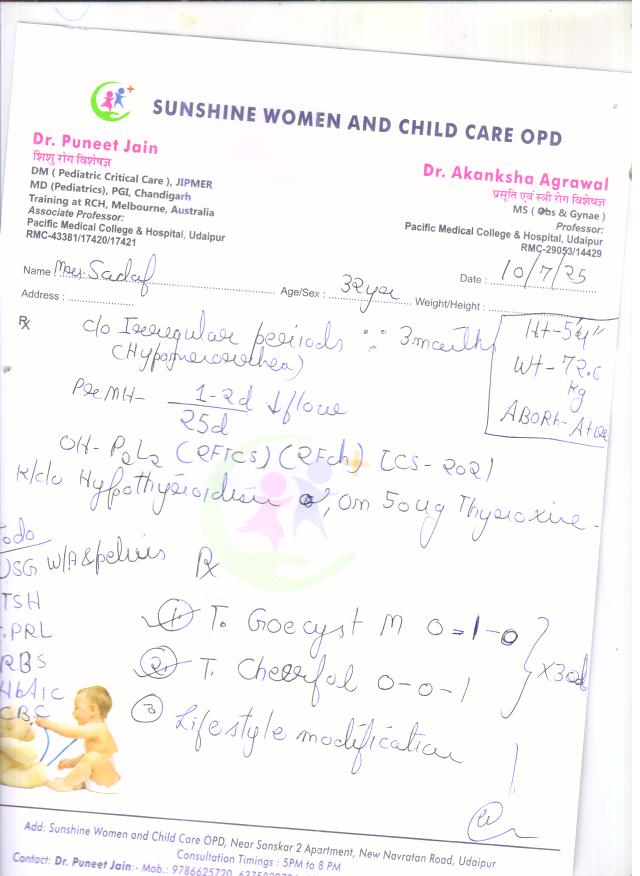 SUNSHINE WOMEN AND CHILD CARE OPD
Dr. Puneet Jain
शिशु रोग विशेषज्ञ
DM ( Pediatric Critical Care ), JIPMER
MD (Pediatrics), PGI, Chandigarh
Training at RCH, Melbourne, Australia
Associate Professor:
Pacific Medical College & Hospital, Udaipur
RMC-43381/17420/17421
Dr. Akanksha Agrawal
प्रसूति एवं स्त्री रोग विशेषज्ञ
MS ( Obs & Gynae )
Professor:
Pacific Medical College & Hospital, Udaipur
RMC-29053/14429
Name Mrs. Sadaf Age/Sex : 32yr Date : 10/7/25
Address : Weight/Height :
Rx c/o Irregular periods ∵ 3 months
(Hypomenorrhea)
Ht - 5'4"
Wt - 72.6
kg
ABORh - A+ve
Pre MH- 1-2d/25d ↓flow
OH- P2L2 (2FTCS) (2Fch) LCS - 2021
K/c/o Hypothyroidism, on 50ug Thyroxine -
Todo
USG W/A & pelvis
TSH
PRL
RBS
HbA1C
CBC
Rx
1. T. Goecyst M 0-1-0
2. T. Cheerful 0-0-1
x30d
3 Lifestyle modification
Add: Sunshine Women and Child Care OPD, Near Sanskar 2 Apartment, New Navratan Road, Udaipur
Consultation Timings : 5PM to 8 PM
Contact: Dr. Puneet Jain:- Mob.: 9786625720,